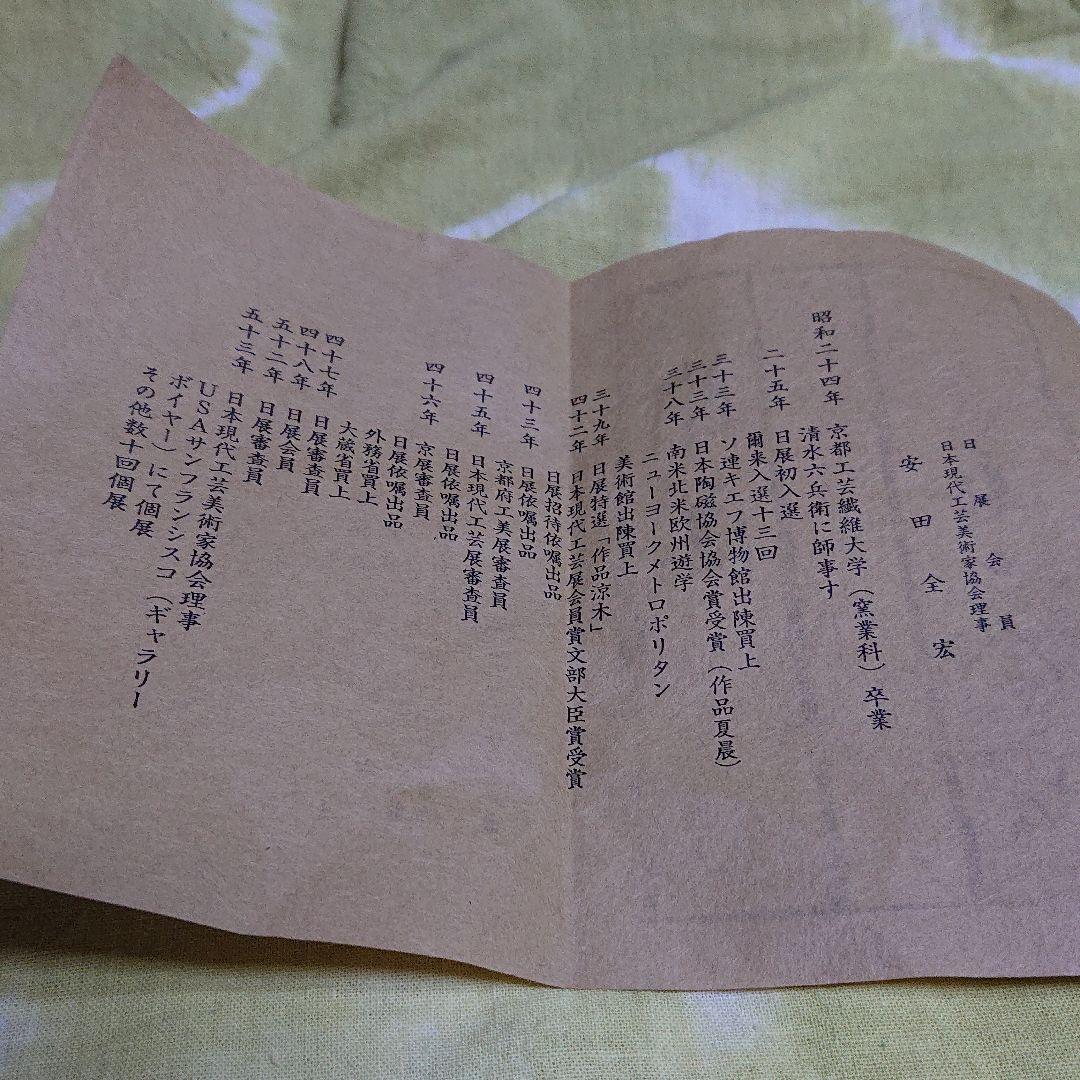 日展会員
日本現代工芸美術家協会理事
安田全宏
昭和二十四年 京都工芸繊維大学（窯業科）卒業
清水六兵衛に師事す
二十五年 日展初入選
爾来入選十三回
三十三年 ソ連キエフ博物館出陳買上
三十三年 日本陶磁協会賞受賞（作品夏晨）
三十八年 南米北米欧州遊学
ニューヨークメトロポリタン
美術館出陳買上
三十九年 日展特選「作品涼木」
四十二年 日本現代工芸展会員賞文部大臣賞受賞
日展招待依嘱出品
四十三年 日展依嘱出品
京都府工美展審査員
四十五年 日本現代工芸展審査員
日展依嘱出品
四十六年 京展審査員
日展依嘱出品
外務省買上
大蔵省買上
四十七年 日展審査員
四十八年 日展会員
五十二年 日展審査員
五十三年 日本現代工芸美術家協会理事
USAサンフランシスコ（ギャラリー
ボイヤー）にて個展
その他数十回個展